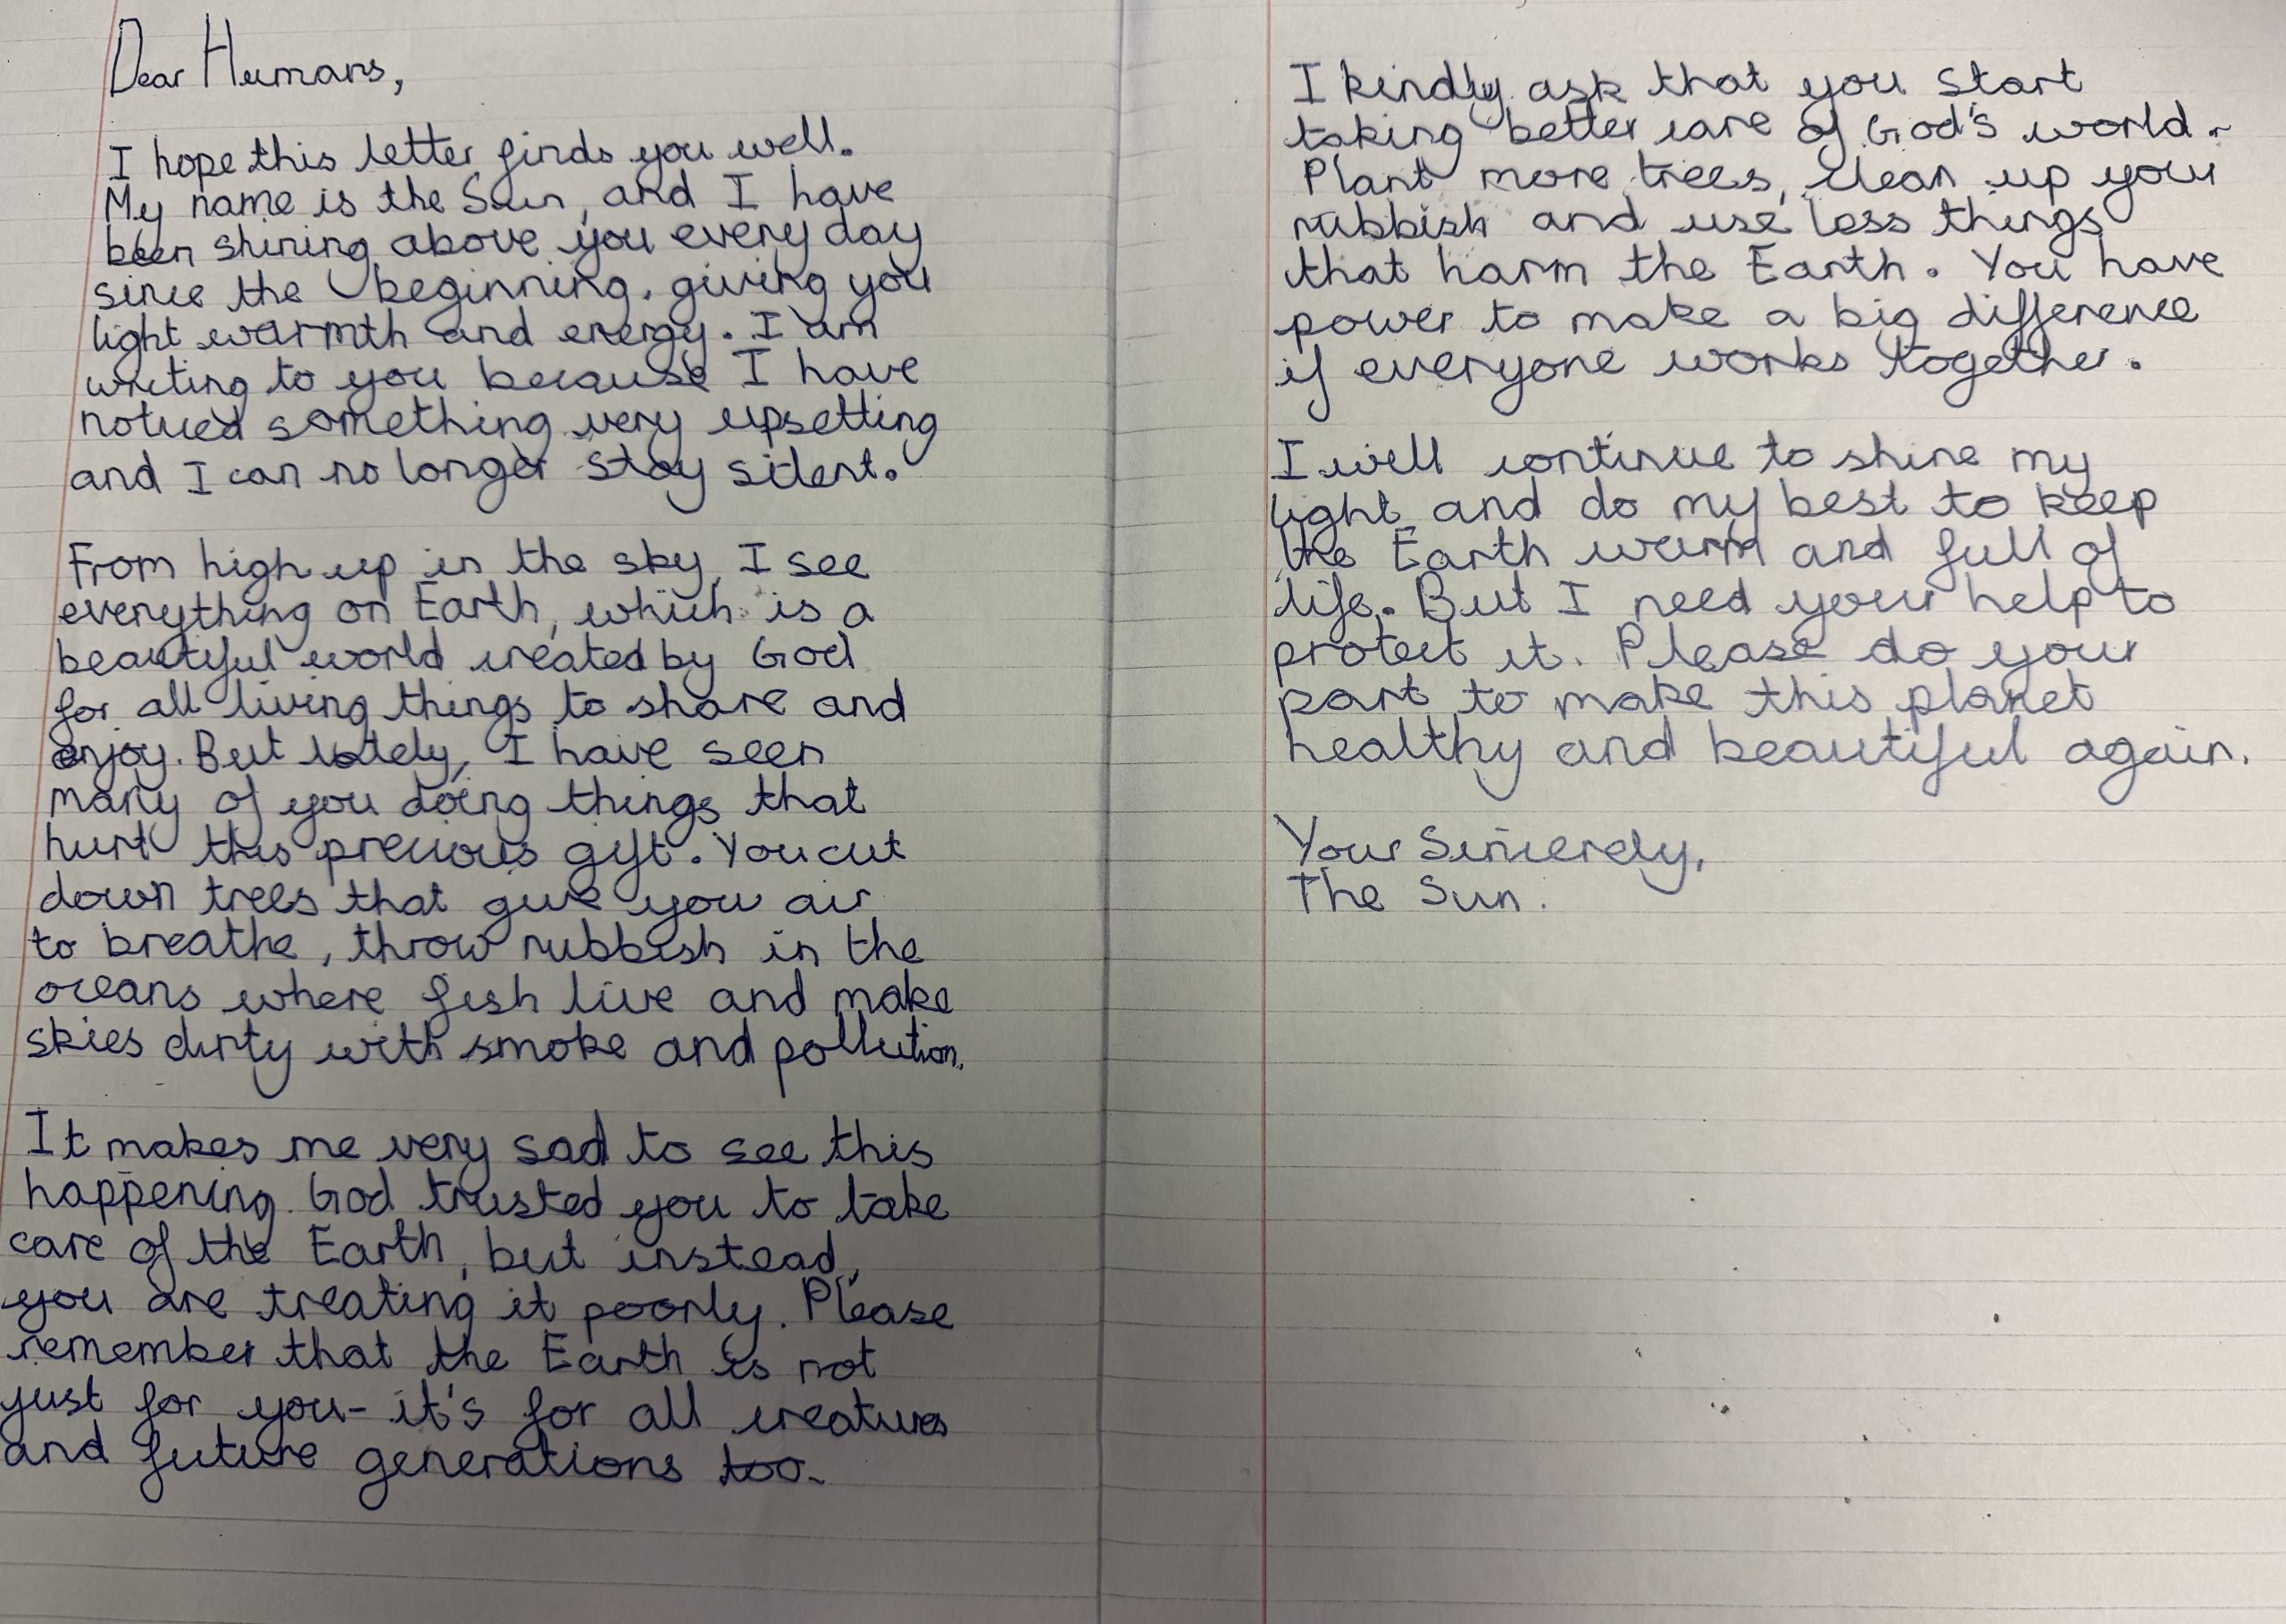 Dear Humans,
I hope this letter finds you well.
My name is the Sun, and I have
been shining above you every day
since the beginning, giving you
light warmth and energy. I am
writing to you because I have
noticed something very upsetting
and I can no longer stay silent.
From high up in the sky, I see
everything on Earth, which is a
beautiful world created by God
for all living things to share and
enjoy. But lately, I have seen
many of you doing things that
hurt this precious gift. You cut
down trees that give you air
to breathe, throw rubbish in the
oceans where fish live and make
skies dirty with smoke and pollution.
It makes me very sad to see this
happening. God trusted you to take
care of the Earth, but instead,
you are treating it poorly. Please
remember that the Earth is not
just for you- it's for all creatures
and future generations too.
I kindly ask that you start
taking better care of God's world.
Plant more trees, clean up your
rubbish and use less things
that harm the Earth. You have
power to make a big difference
if everyone works together.
I will continue to shine my
light and do my best to keep
the Earth warm and full of
life. But I need your help to
protect it. Please do your
part to make this planet
healthy and beautiful again.
Your Sincerely,
The Sun.